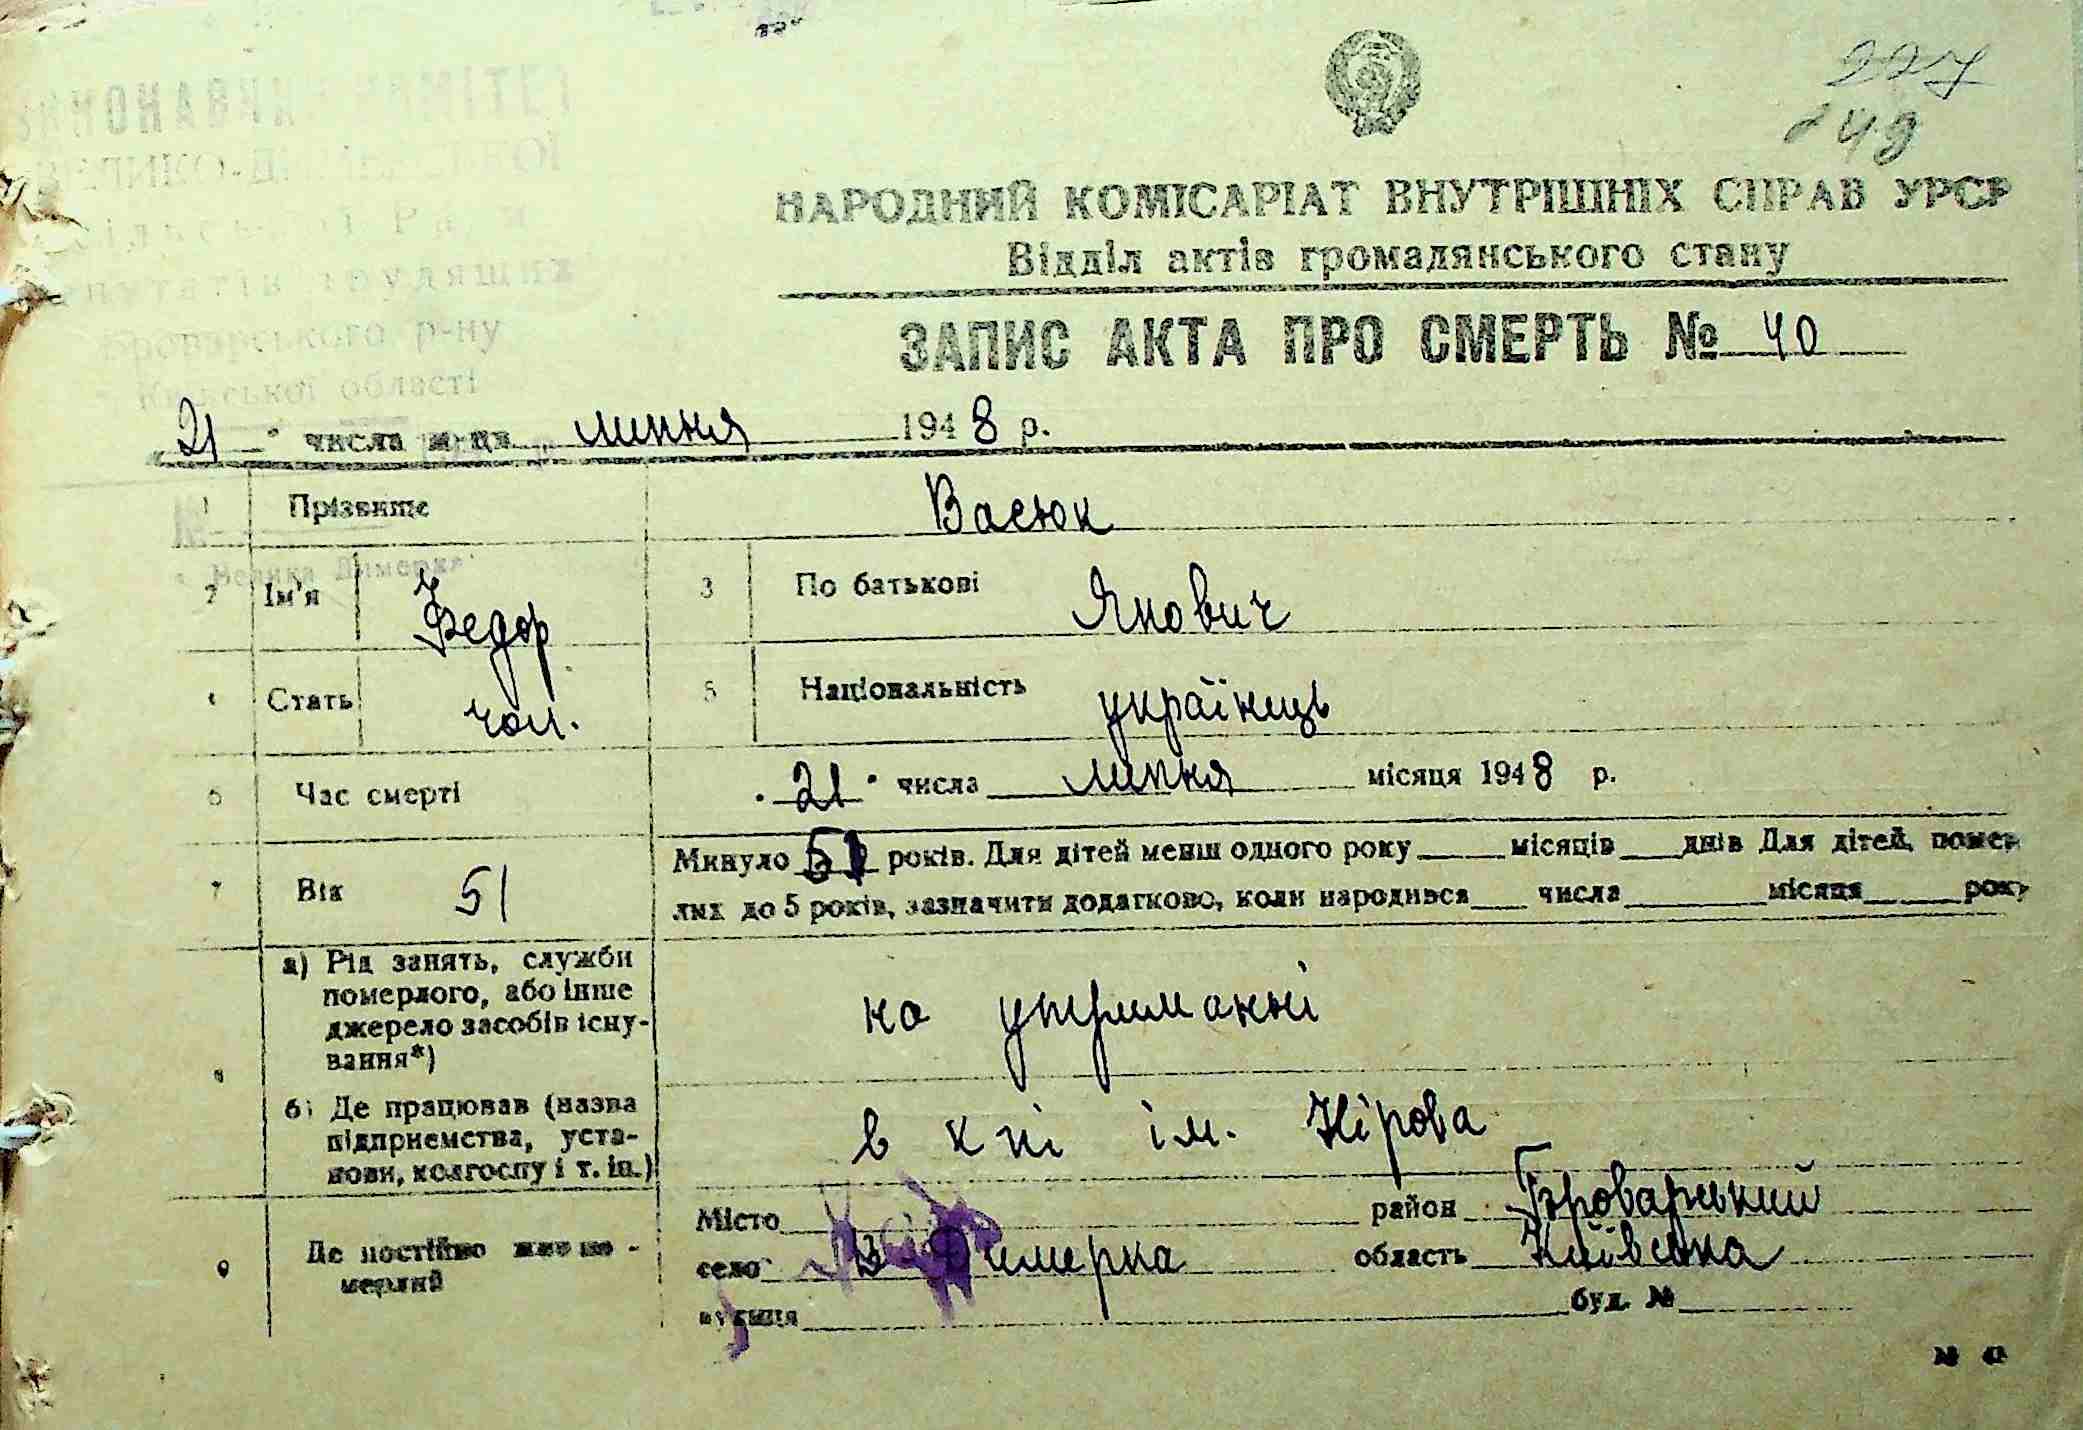 227
149
НАРОДНИЙ КОМІСАРІАТ ВНУТРІШНІХ СПРАВ УРСР
Відділ актів громадянського стану
ЗАПИС АКТА ПРО СМЕРТЬ № 40
Броварського р-ну
Київської області
21 " числа м-ця липня 1948 р.
1 Прізвище Васюк
Велика Димерка
2 Ім'я Федор 3 По батькові Янович
4 Стать чол. 5 Національність українець
6 Час смерті " 21 " числа липня місяця 1948 р.
7 Вік 51 Минуло 51 років. Для дітей менш одного року місяців днів Для дітей, помер-
лих до 5 років, зазначити додатково, коли народився числа місяця року
8 а) Рід занять, служби
померлого, або інше
джерело засобів існу-
вання*)
на утриманні
б) Де працював (назва
підприємства, уста-
нови, колгоспу і т. ін.)
в к гі ім. Кірова
9 Де постійно жив по-
мерлий
Місто район Броварський
село В Димерка область Київська
вулиця буд. №